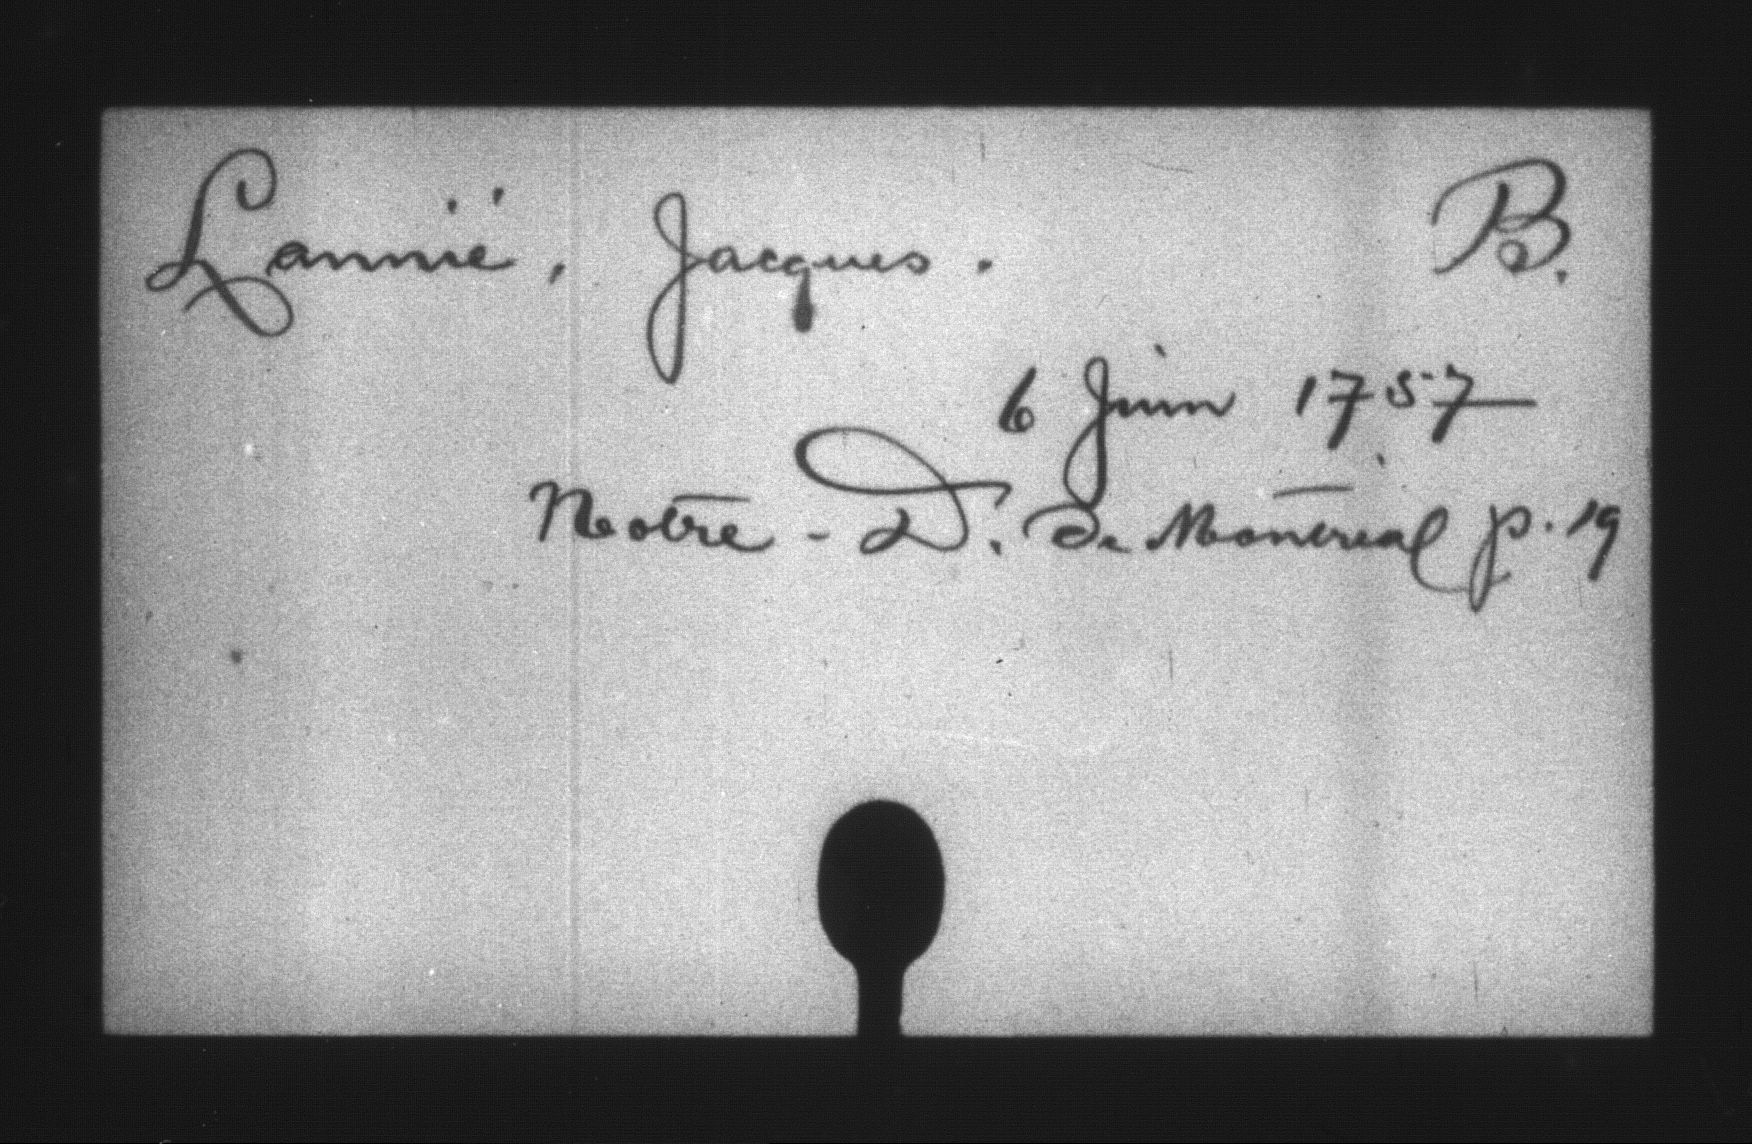 Lannié, Jacques. B.
6 Juin 1757
Notre-D. de Montréal p. 19